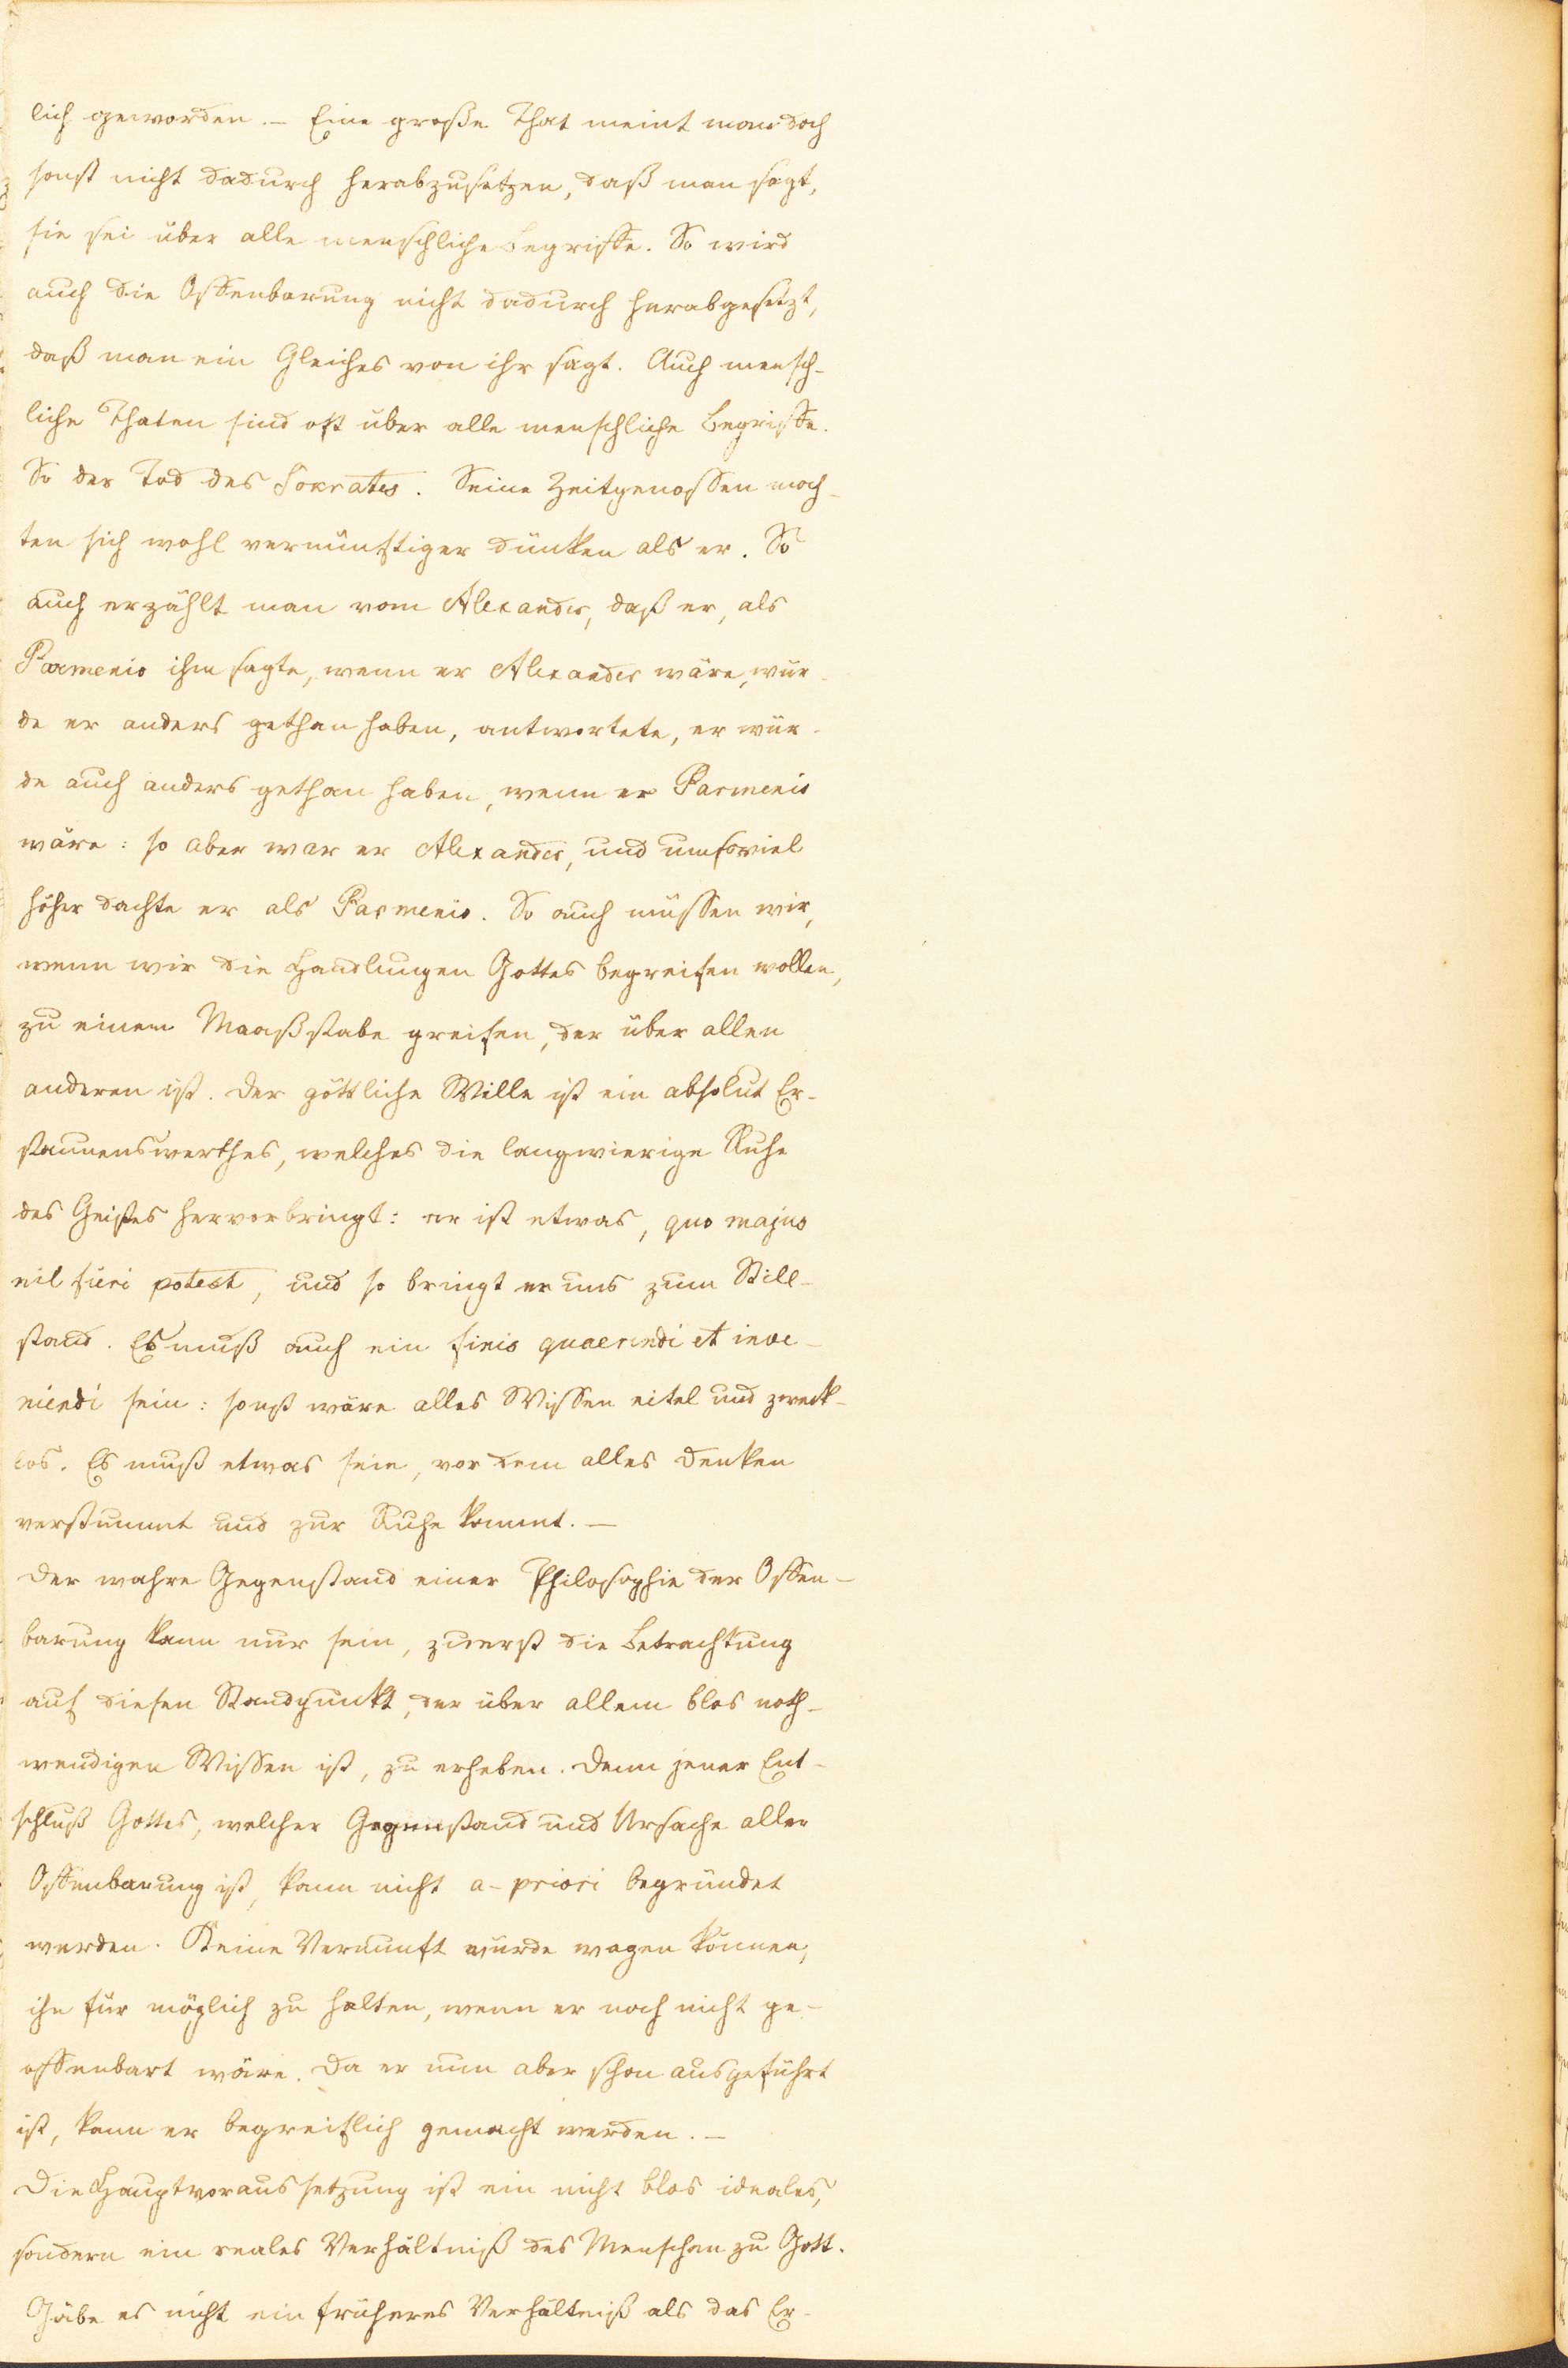 lich geworden. — Eine große That meint man doch
sonst nicht dadurch herabzusetzen, daß man sagt,
sie sei über alle menschliche Begriffe. So wird
auch die Offenbarung nicht dadurch herabgesetzt,
daß man ein Gleiches von ihr sagt. Auch mensch-
liche Thaten sind oft über alle menschliche Begriffe.
So der Tod des Sokrates. Seine Zeitgenossen moch-
ten sich wohl vernünftiger dünken als er. So
auch erzählt man vom Alexander, daß er, als
Parmenio ihm sagte, wenn er Alexander wäre, wür-
de er anders gethan haben, antwortete, er wür-
de auch anders gethan haben, wenn er Parmenio
wäre: so aber war er Alexander, und umsoviel
höher dachte er als Parmenio. So auch müssen wir,
wenn wir die Handlungen Gottes begreifen wollen,
zu einem Maaßstabe greifen, der über allen
anderen ist. Der göttliche Wille ist ein absolut Er-
staunenswerthes, welches die langwierige Ruhe
des Geistes hervorbringt: er ist etwas, quo majus
nil fieri potest, und so bringt er uns zum Still-
stand. Es muß auch ein finis quaerendi et inve-
niendi sein: sonst wäre alles Wissen eitel und zweck-
los. Es muß etwas sein, vor dem alles Denken
verstummt und zur Ruhe kommt. —
Der wahre Gegenstand einer Philosophie der Offen-
barung kann nur sein, zuerst die Betrachtung
auf diesen Standpunkt, der über allem blos noth-
wendigen Wissen ist, zu erheben. Denn jener Ent-
schluß Gottes, welcher Gegenstand und Ursache aller
Offenbarung ist, kann nicht a-priori begründet
werden. Keine Vernunft würde wagen können,
ihn für möglich zu halten, wenn er noch nicht ge-
offenbart wäre. Da er nun aber schon ausgeführt
ist, kann er begreiflich gemacht werden. —
Die Hauptvoraussetzung ist ein nicht blos ideales,
sondern ein reales Verhältniß des Menschen zu Gott.
Gäbe es nicht ein früheres Verhältniß als das Er-